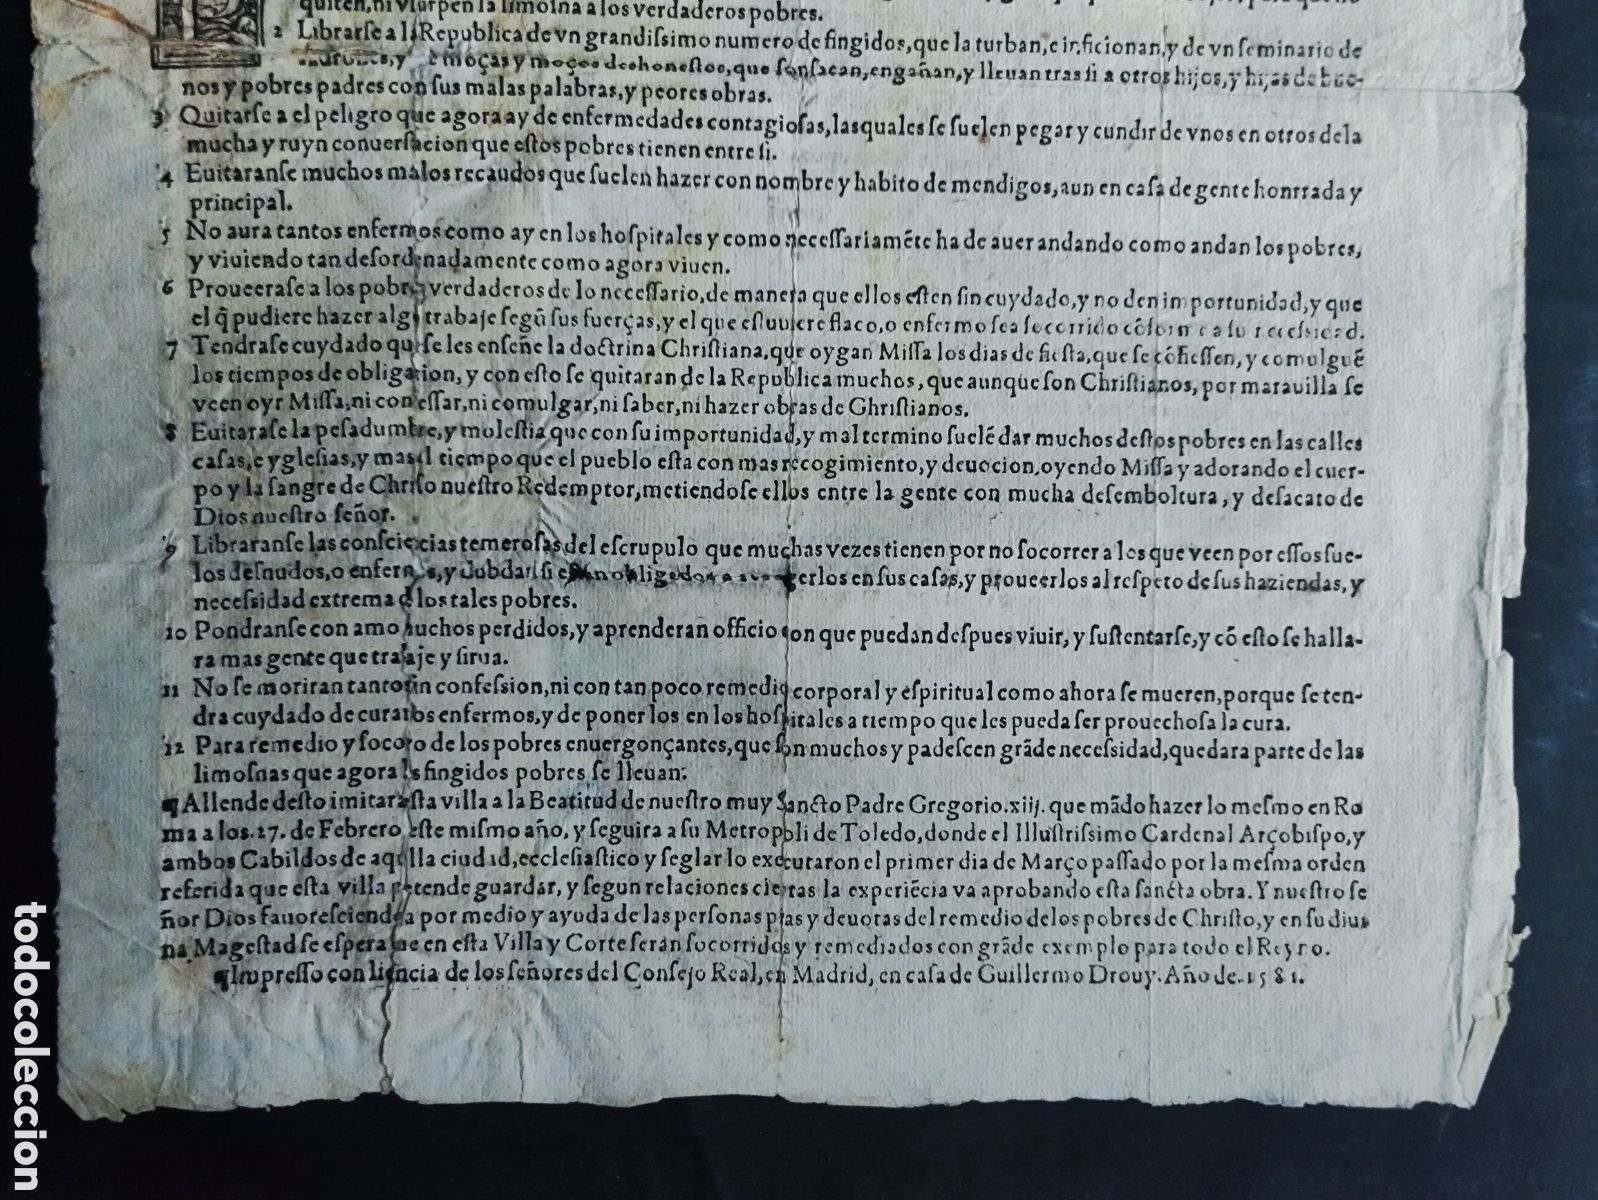 quiten, ni vſurpen la limoſna a los verdaderos pobres.
2 Librarſe a la Republica de vn grandiſsimo numero de fingidos, que la turban, e inficionan, y de vn ſeminario de
ladrones, y de moças y moços deshoneſtos, que ſonſacan, engañan, y lleuan tras ſi a otros hijos, y hijas de bue-
nos y pobres padres con ſus malas palabras, y peores obras.
3 Quitarſe a el peligro que agora ay de enfermedades contagioſas, las quales ſe ſuelen pegar y cundir de vnos en otros de la
mucha y ruyn conuerſacion que eſtos pobres tienen entre ſi.
4 Euitaranſe muchos malos recaudos que ſuelen hazer con nombre y habito de mendigos, aun en caſa de gente honrrada y
principal.
5 No aura tantos enfermos como ay en los hoſpitales y como neceſſariamẽte ha de auer andando como andan los pobres,
y viuiendo tan deſordenadamente como agora viuen.
6 Proueeraſe a los pobres verdaderos de lo neceſſario, de manera que ellos eſten ſin cuydado, y no den importunidad, y que
el q̃ pudiere hazer algo trabaje ſegũ ſus fuerças, y el que eſtuuiere flaco, o enfermo ſea ſocorrido cõforme a ſu neceſsidad.
7 Tendraſe cuydado que ſe les enſeñe la doctrina Chriſtiana, que oygan Miſſa los dias de fieſta, que ſe cõfieſſen, y comulguẽ
los tiempos de obligacion, y con eſto ſe quitaran de la Republica muchos, que aunque ſon Chriſtianos, por marauilla ſe
veen oyr Miſſa, ni confeſſar, ni comulgar, ni ſaber, ni hazer obras de Ghriſtianos.
8 Euitaraſe la peſadumbre, y moleſtia que con ſu importunidad, y mal termino ſuelẽ dar muchos deſtos pobres en las calles
caſas, e ygleſias, y mas al tiempo que el pueblo eſta con mas recogimiento, y deuocion, oyendo Miſſa y adorando el cuer-
po y la ſangre de Chriſto nueſtro Redemptor, metiendoſe ellos entre la gente con mucha deſemboltura, y deſacato de
Dios nueſtro ſeñor.
9 Libraranſe las conſciencias temeroſas del eſcrupulo que muchas vezes tienen por no ſocorrer a los que veen por eſſos ſue-
los deſnudos, o enfermos, y dubdar ſi eſtan obligados a acogerlos en ſus caſas, y proueerlos al reſpeto de ſus haziendas, y
neceſsidad extrema de los tales pobres.
10 Pondranſe con amo muchos perdidos, y aprenderan officio con que puedan deſpues viuir, y ſuſtentarſe, y cõ eſto ſe halla-
ra mas gente que trabaje y ſirua.
11 No ſe moriran tantos ſin confeſsion, ni con tan poco remedio corporal y eſpiritual como ahora ſe mueren, porque ſe ten-
dra cuydado de curar los enfermos, y de poner los en los hoſpitales a tiempo que les pueda ſer prouechoſa la cura.
12 Para remedio y ſocorro de los pobres enuergonçantes, que ſon muchos y padeſcen grãde neceſsidad, quedara parte de las
limoſnas que agora los fingidos pobres ſe lleuan:
¶ Allende deſto imitara eſta villa a la Beatitud de nueſtro muy Sancto Padre Gregorio. xiij. que mãdo hazer lo meſmo en Ro
ma a los. 27. de Febrero eſte miſmo año, y ſeguira a ſu Metropoli de Toledo, donde el Illuſtriſsimo Cardenal Arçobiſpo, y
ambos Cabildos de aquella ciudad, eccleſiaſtico y ſeglar lo executaron el primer dia de Março paſſado por la meſma orden
referida que eſta villa pretende guardar, y ſegun relaciones ciertas la experiẽcia va aprobando eſta ſancta obra. Y nueſtro ſe
ñor Dios fauoreſciendola por medio y ayuda de las perſonas pias y deuotas del remedio de los pobres de Chriſto, y en ſu diui
na Mageſtad ſe eſpera que en eſta Villa y Corte ſeran ſocorridos y remediados con grãde exemplo para todo el Reyno.
¶ Impreſſo con licencia de los ſeñores del Conſejo Real, en Madrid, en caſa de Guillermo Drouy. Año de. 1581.
todocoleccion